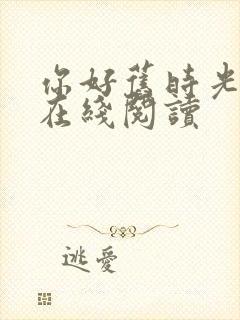 你好舊時光
在綫閱讀
逃愛